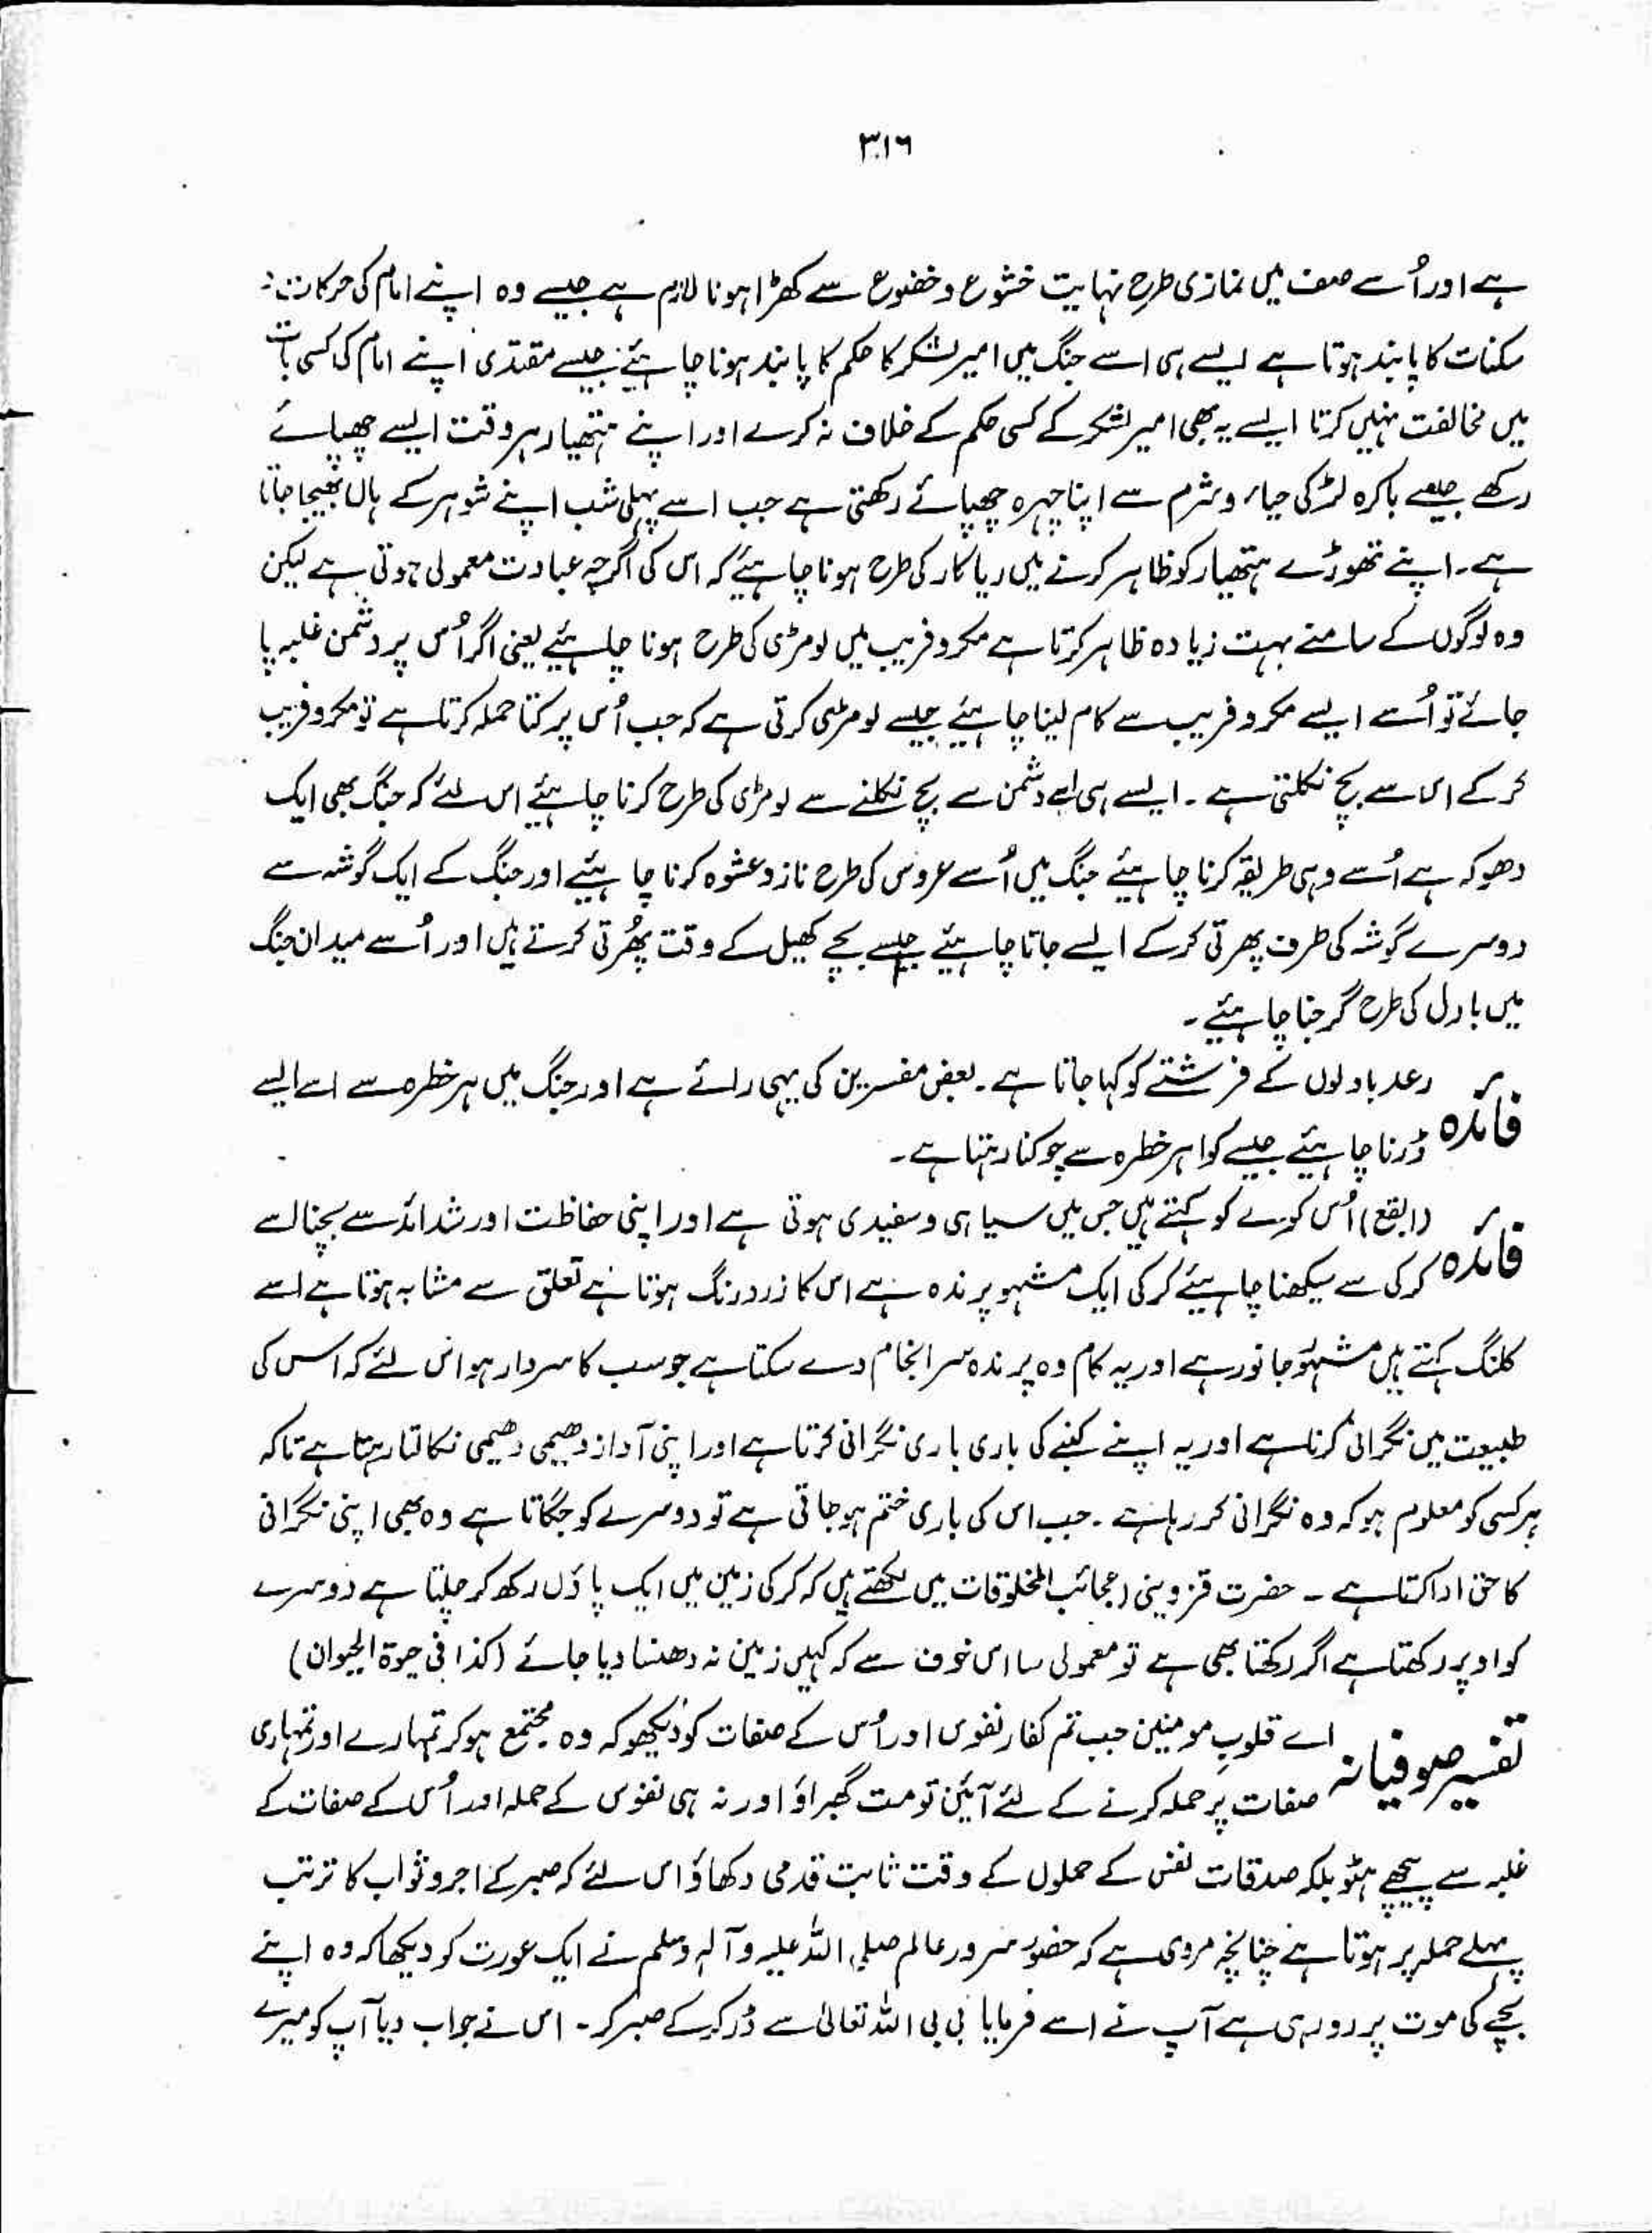 ٣١٦
ہے اور اُسے صف میں نمازی طرح نہایت خشوع و خضوع سے کھڑا ہونا لازم ہے جیسے وہ اپنے امام کی حرکات و
سکنات کا پابند ہوتا ہے ایسے ہی اسے جنگ میں امیر لشکر کا حکم کا پابند ہونا چاہیئے جیسے مقتدی اپنے امام کی کسی بات
میں مخالفت نہیں کرتا ایسے یہ بھی امیر لشکر کے کسی حکم کے خلاف نہ کرے اور اپنے ہتھیار ہر وقت ایسے چھپائے
رکھے جیسے باکرہ لڑکی حیاء و شرم سے اپنا چہرہ چھپائے رکھتی ہے جب اسے پہلی شب اپنے شوہر کے ہاں بھیجا جاتا
ہے۔ اپنے تھوڑے ہتھیار کو ظاہر کرنے میں ریا کار کی طرح ہونا چاہیئے کہ اس کی اگرچہ عبادت معمولی ہوتی ہے لیکن
وہ لوگوں کے سامنے بہت زیادہ ظاہر کرتا ہے مکر و فریب میں لومڑی کی طرح ہونا چاہیئے یعنی اگر اُس پر دشمن غلبہ پا
جائے تو اُسے ایسے مکر و فریب سے کام لینا چاہیئے جیسے لومڑی کرتی ہے کہ جب اُس پر کتا حملہ کرتا ہے تو مکر و فریب
کر کے اس سے بچ نکلتی ہے ۔ ایسے ہی اسے دشمن سے بچ نکلنے سے لومڑی کی طرح کرنا چاہیئے اس لئے کہ جنگ بھی ایک
دھوکہ ہے اُسے وہی طریقہ کرنا چاہیئے جنگ میں اُسے عروس کی طرح ناز و عشوہ کرنا چاہیئے اور جنگ کے ایک گوشہ سے
دوسرے گوشہ کی طرف پھرتی کر کے ایسے جانا چاہیئے جیسے بچے کھیل کے وقت پھُرتی کرتے ہیں اور اُسے میدان جنگ
میں بادل کی طرح گرجنا چاہیئے ۔
فائدہ رعد بادلوں کے فرشتے کو کہا جاتا ہے ۔ بعض مفسرین کی یہی رائے ہے اور جنگ میں ہر خطرہ سے اسے ایسے
ڈرنا چاہیئے جیسے کوا ہر خطرہ سے چوکنا رہتا ہے ۔
فائدہ (ابقع) اُس کوے کو کہتے ہیں جس میں سیاہی و سفیدی ہوتی ہے اور اپنی حفاظت اور شدائد سے بچنا اسے
کرکی سے سیکھنا چاہیئے کرکی ایک مشہور پرندہ ہے اس کا زرد رنگ ہوتا ہے تعلق سے مشابہ ہوتا ہے اسے
کلنگ کہتے ہیں مشہور جانور ہے اور یہ کام وہ پرندہ سر انجام دے سکتا ہے جو سب کا سردار ہو اس لئے کہ اس کی
طبیعت میں نگرانی کرنا ہے اور یہ اپنے کنبے کی باری باری نگرانی کرتا ہے اور اپنی آواز دھیمی دھیمی نکالتا رہتا ہے تاکہ
ہر کسی کو معلوم ہو کہ وہ نگرانی کر رہا ہے ۔ جب اس کی باری ختم ہو جاتی ہے تو دوسرے کو جگاتا ہے وہ بھی اپنی نگرانی
کا حق ادا کتا ہے ۔ حضرت قزوینی (عجائب المخلوقات میں لکھتے ہیں کہ کرکی زمین میں ایک پاؤں رکھ کر چلتا ہے دوسرے
کو اوپر رکھتا ہے اگر رکھتا بھی ہے تو معمولی سا اس خوف سے کہ کہیں زمین نہ دھنسا دیا جائے (کذا فی حیوۃ الحیوان)
تفسیر صوفیانہ اے قلوبِ مومنین جب تم کفار نفوس اور اُس کے صفات کو دیکھو کہ وہ مجتمع ہو کر تمہارے اور تمہاری
صفات پر حملہ کرنے کے لئے آئیں تو مت گھبراؤ اور نہ ہی نفوس کے حملہ اور اُس کے صفات کے
غلبہ سے پیچھے ہٹو بلکہ صدقات نفس کے حملوں کے وقت ثابت قدمی دکھاؤ اس لئے کہ صبر کے اجر و ثواب کا ترتب
پہلے حملہ پر ہوتا ہے چنانچہ مروی ہے کہ حضور سرور عالم صلی اللہ علیہ وآلہ وسلم نے ایک عورت کو دیکھا کہ وہ اپنے
بچے کی موت پر رو رہی ہے آپ نے اسے فرمایا بی بی اللہ تعالیٰ سے ڈر کر کے صبر کر ۔ اس نے جواب دیا آپ کو میرے